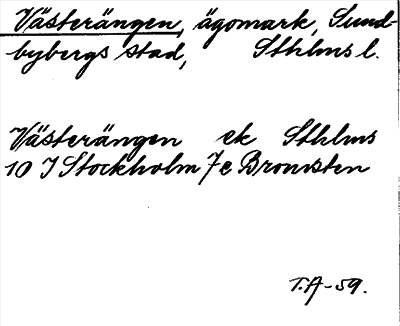 Västerängen, ägomark, Sund-
bybergs stad, Sthlms l.
Västerängen ek Sthlms
10 I Stockholm 7e Bromsten
T.A-59.